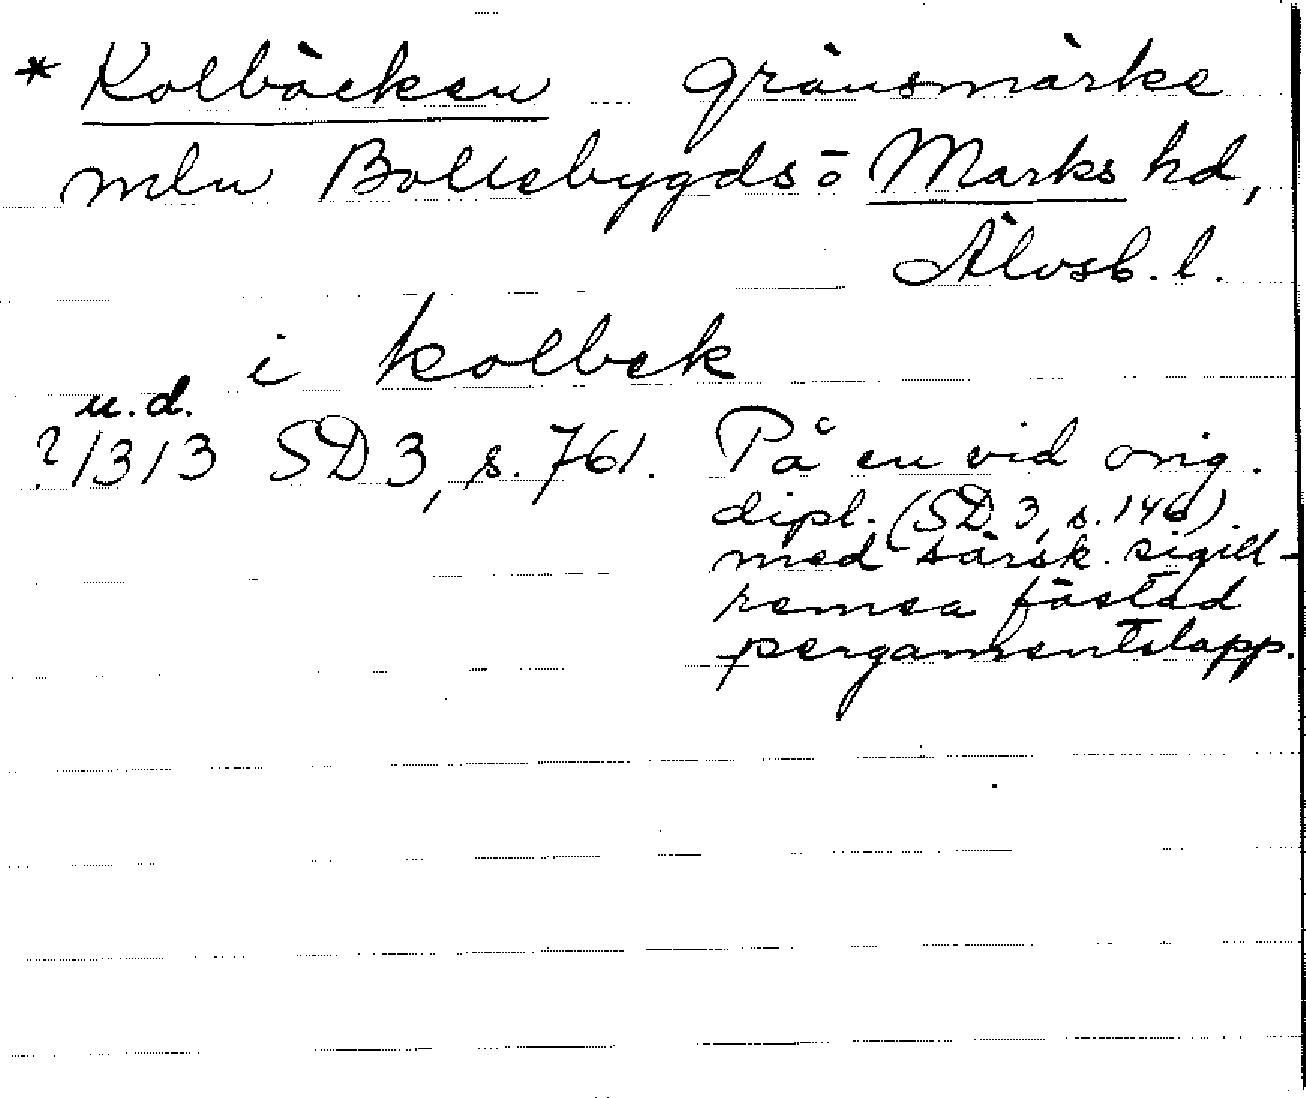 * Kolbäcken gränsmärke
mln Bollebygds- o Marks hd,
Älvsb. l.
i kolbek
u.d.
? 1313 SD 3, s. 761. På en vid orig.
dipl. (SD 3, s. 146)
med särsk. sigill-
remsa fästad
pergamentslapp.